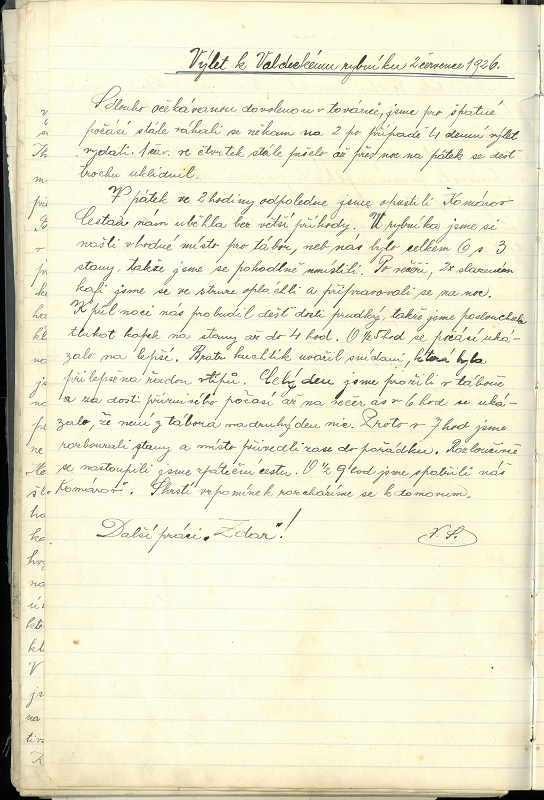 Výlet k Valdeckému rybníku 2 července 1926.
S dlouho očekávanou dovolenou v továrně, jsme pro špatné
počasí stále váhali se někam na 2 po případě 4 denní výlet
vydati. 1 červ. ve čtvrtek stále pršelo až před noc na pátek se déšť
trochu uklidnil.
V pátek ve 2 hodiny odpoledne jsme opustili Komárov
Cesta nám uběhla bez větší příhody. U rybníka jsme si
našli vhodné místo pro tábor, neb nás bylo celkem 6 s 3
stany, takže jsme se pohodlně umístili. Po večeři, 2x slazeném
kafi jsme se ve struze opláchli a připravovali se na noc.
K půl noci nás probudil déšť dosti prudký, takže jsme poslouchali
tlukot kapek na stany až do 4 hod. O ½5 hod se počasí uká-
zalo na lepší. Bratr kuchtík uvařil snídani, která byla
přilepšena řadou vtipů. Celý den jsme prožili v táboře
a za dosti příznivého počasí až na večer as v 6 hod se uká-
zalo, že není z tábora na druhý den nic. Proto v 7 hod jsme
rozbourali stany a místo přivedli zase do pořádku. Rozloučivše
se nastoupili jsme zpáteční cestu. O ½ 9 hod jsme spatřili náš
"Komárov". S hrstí vzpomínek rozcházíme se k domovům.
Další práci "Zdar"!
V. S.